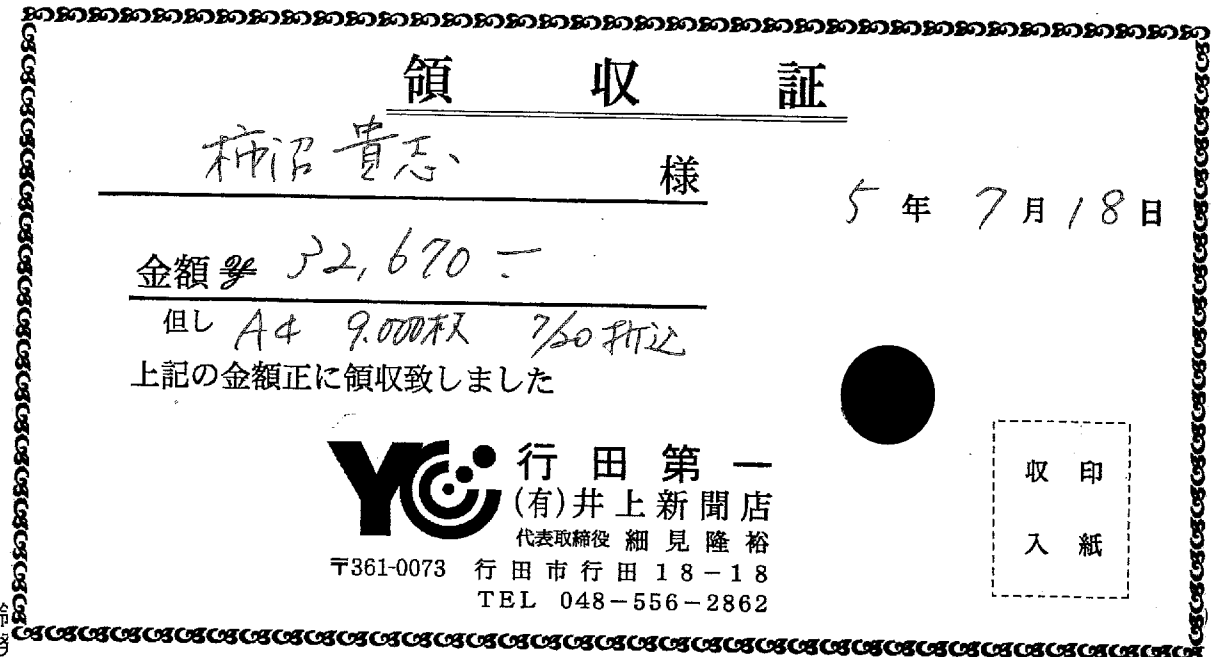 領収証
柿沼貴志 様
5年 7月18日
金額 ¥ 32,670-
但し A4 9.000枚 7/20折込
上記の金額正に領収致しました
YC 行田第一
(有)井上新聞店
代表取締役 細見隆裕
〒361-0073 行田市行田18-18
TEL 048-556-2862
収印
入紙